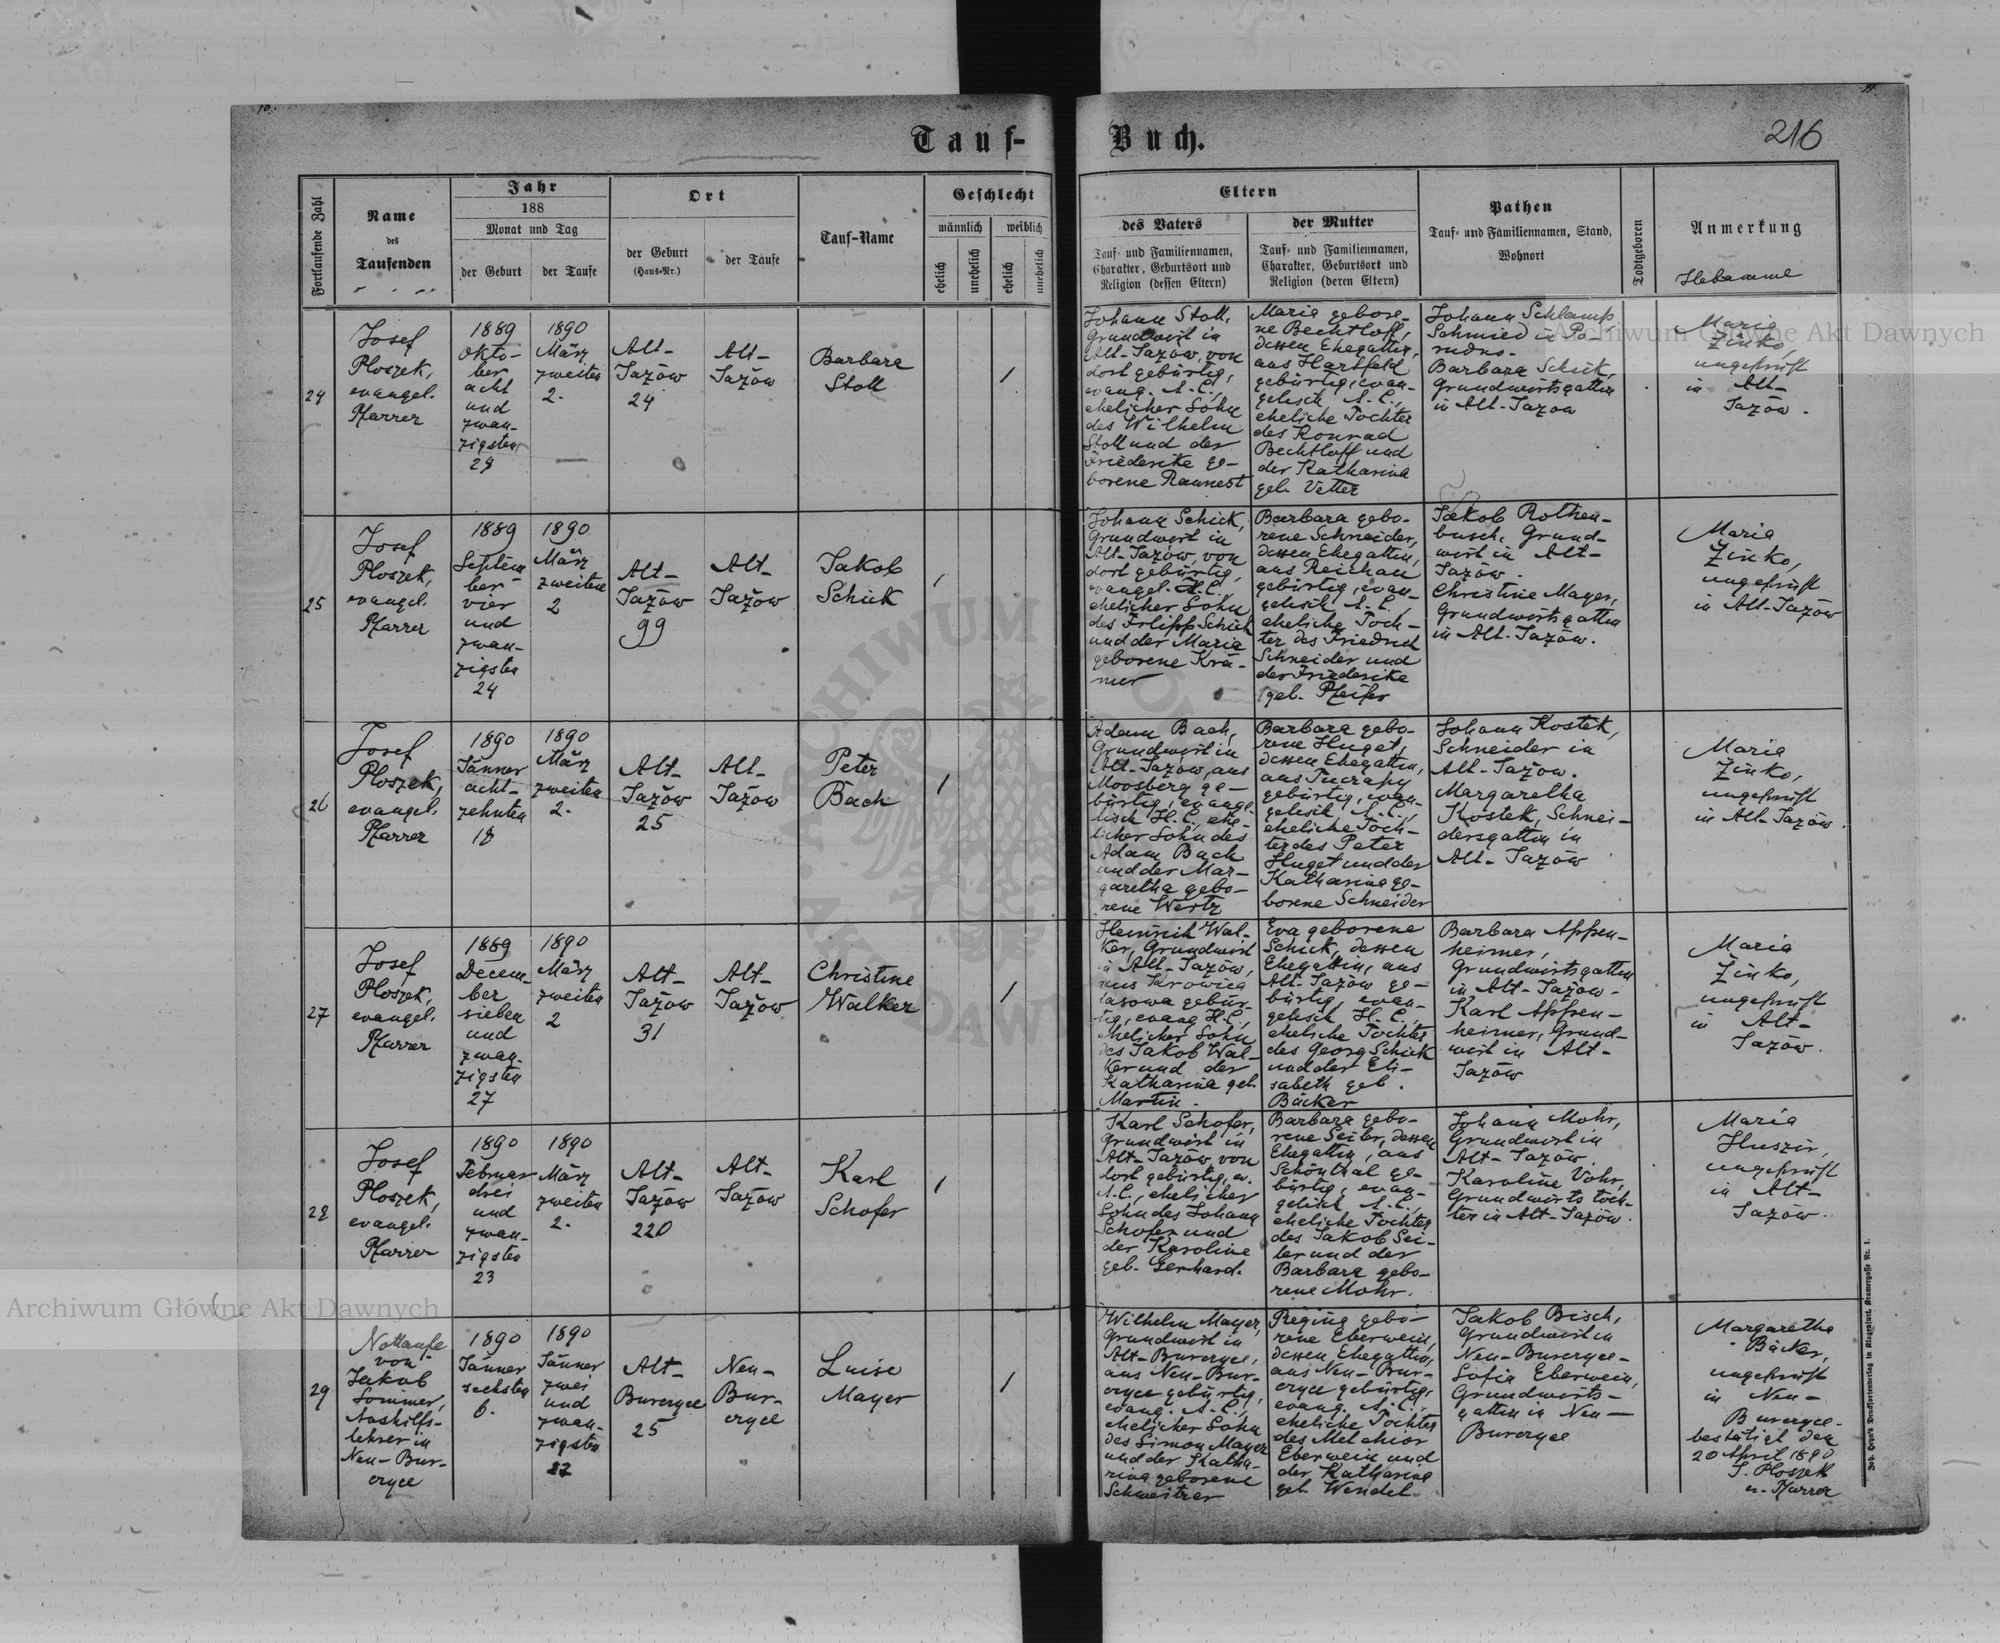 10.
11.
Tauf-
Buch.
216
Fortlaufende Zahl
Name
des
Taufenden
Jahr
188
Monat und Tag
der Geburt
der Taufe
Ort
der Geburt
(Haus-Nr.)
der Taufe
Tauf-Name
Geschlecht
männlich
weiblich
ehelich
unehelich
ehelich
unehelich
Eltern
des Vaters
Tauf- und Familiennamen,
Charakter, Geburtsort und
Religion (dessen Eltern)
der Mutter
Tauf- und Familiennamen,
Charakter, Geburtsort und
Religion (deren Eltern)
Pathen
Tauf- und Familiennamen, Stand,
Wohnort
Todtgeboren
Anmerkung
Hebamme
24
Josef
Ploszek,
evangel.
Pfarrer
1889
Okto-
ber
acht
und
zwan-
zigsten
28
1890
März
zweiten
2.
Alt-
Jazów
24
Alt-
Jazów
Barbara
Stoll
1
Johann Stoll,
Grundwirt in
Alt-Jazów, von
dort gebürtig,
evang. A.C.,
ehelicher Sohn
des Wilhelm
Stoll und der
Friederike ge-
borene Raunest
Maria gebore-
ne Bechtloff,
dessen Ehegattin,
aus Hartfeld
gebürtig, evan-
gelisch A.C.,
eheliche Tochter
des Konrad
Bechtloff und
der Katharina
geb. Vetter
Johann Schlamp
Schmied in Po-
rudno.
Barbara Schick,
Grundwirtsgattin
in Alt-Jazow
Maria
Zinko,
ungeprüft
in Alt-
Jazów.
25
Josef
Ploszek,
evangel.
Pfarrer
1889
Septem
ber
vier
und
zwan-
zigsten
24
1890
März
zweiten
2
Alt-
Jazów
99
Alt-
Jazów
Jakob
Schick
1
Johann Schick,
Grundwirt in
Alt-Jazów, von
dort gebürtig,
evangel. H.C.,
ehelicher Sohn
des Filipp Schick
und der Maria
geborene Krä-
mer
Barbara gebo-
rene Schneider,
dessen Ehegattin,
aus Reichau
gebürtig, evan-
gelisch A.C.,
eheliche Toch-
ter des Friedrich
Schneider und
der Friederike
geb. Pfeifer
Jakob Rothen-
busch, Grund-
wirt in Alt-
Jazów.
Christine Mayer,
Grundwirtsgattin
in Alt-Jazów.
Maria
Zinko,
ungeprüft
in Alt-Jazów
26
Josef
Ploszek,
evangel.
Pfarrer
1890
Jänner
acht-
zehnten
18
1890
März
zweiten
2.
Alt-
Jazów
25
Alt-
Jazów
Peter
Bach
1
Adam Bach,
Grundwirt in
Alt-Jazów, aus
Moosberg ge-
bürtig, evange-
lisch H.C., ehe-
licher Sohn des
Adam Bach
und der Mar-
garetha gebo-
rene Wertz
Barbara gebo-
rene Huget,
dessen Ehegattin,
aus Tucrapy
gebürtig, evan-
gelisch A.C.,
eheliche Toch-
ter des Peter
Huget und der
Katharina ge-
borene Schneider
Johann Kostek,
Schneider in
Alt-Jazow.
Margaretha
Kostek, Schnei-
dersgattin in
Alt-Jazów
Maria
Zinko,
ungeprüft
in Alt-Jazów.
27
Josef
Ploszek,
evangel.
Pfarrer
1889
Decem-
ber
sieben
und
zwan-
zigsten
27
1890
März
zweiten
2
Alt-
Jazów
31
Alt-
Jazów
Christine
Walker
1
Heinrich Wal-
ker, Grundwirt
in Alt-Jazów,
aus Krowica
lasowa gebür-
tig, evang. H.C.,
ehelicher Sohn
des Jakob Wal-
ker und der
Katharina geb.
Martin.
Eva geborene
Schick, dessen
Ehegattin, aus
Alt-Jazów ge-
bürtig, evan-
gelisch H.C.,
eheliche Tochter
des Georg Schick
und der Eli-
sabeth geb.
Bäcker
Barbara Appen-
heimer,
Grundwirtsgattin
in Alt-Jazów.
Karl Appen-
heimer, Grund-
wirt in Alt-
Jazów
Maria
Zinko,
ungeprüft
in Alt-
Jazów.
28
Josef
Ploszek,
evangel.
Pfarrer
1890
Februar
drei
und
zwan-
zigsten
23
1890
März
zweiten
2.
Alt-
Jazów
220
Alt-
Jazów
Karl
Schofer
1
Karl Schofer,
Grundwirt in
Alt-Jazów, von
dort gebürtig, ev.
A.C., ehelicher
Sohn des Johann
Schofer und
der Karoline
geb. Gerhard.
Barbara gebo-
rene Seiler, dessen
Ehegattin, aus
Schönthal ge-
bürtig, evan-
gelisch A.C.,
eheliche Tochter
des Jakob Sei-
ler und der
Barbara gebo-
rene Mohr.
Johann Mohr,
Grundwirt in
Alt-Jazów
Karoline Vohr,
Grundwirtstoch-
ter in Alt-Jazów.
Maria
Huszir,
ungeprüft
in Alt-
Jazów.
29
Nottaufe
von
Jakob
Sommer,
Aushilfs-
lehrer in
Neu-Bur-
czyce
1890
Jänner
sechsten
6.
1890
Jänner
zwei
und
zwan-
zigsten
22
Alt-
Burczyce
25
Neu-
Bur-
czyce
Luise
Mayer
1
Wilhelm Mayer,
Grundwirt in
Alt-Burczyce,
aus Neu-Bur-
czyce gebürtig,
evang. A.C.,
ehelicher Sohn
des Simon Mayer
und der Katha-
rina geborene
Schweitzer
Regina gebo-
rene Eberwein,
dessen Ehegattin,
aus Neu-Bur-
czyce gebürtig,
evang. A.C.,
eheliche Tochter
des Melchior
Eberwein und
der Katharina
geb. Wendel
Jakob Bisch,
Grundwirt in
Neu-Burczyce-
Sofia Eberwein,
Grundwirts-
gattin in Neu-
Burczyce
Margaretha
Bäcker,
ungeprüft
in Neu-
Burczyce.
bestätigt den
20 April 1890
J. Ploszek
ev. Pfarrer
Joh. Heyn's Drucksortenverlag in Klagenfurt, Kramergasse Nr. 1.
Archiwum Główne Akt Dawnych
Archiwum Główne Akt Dawnych